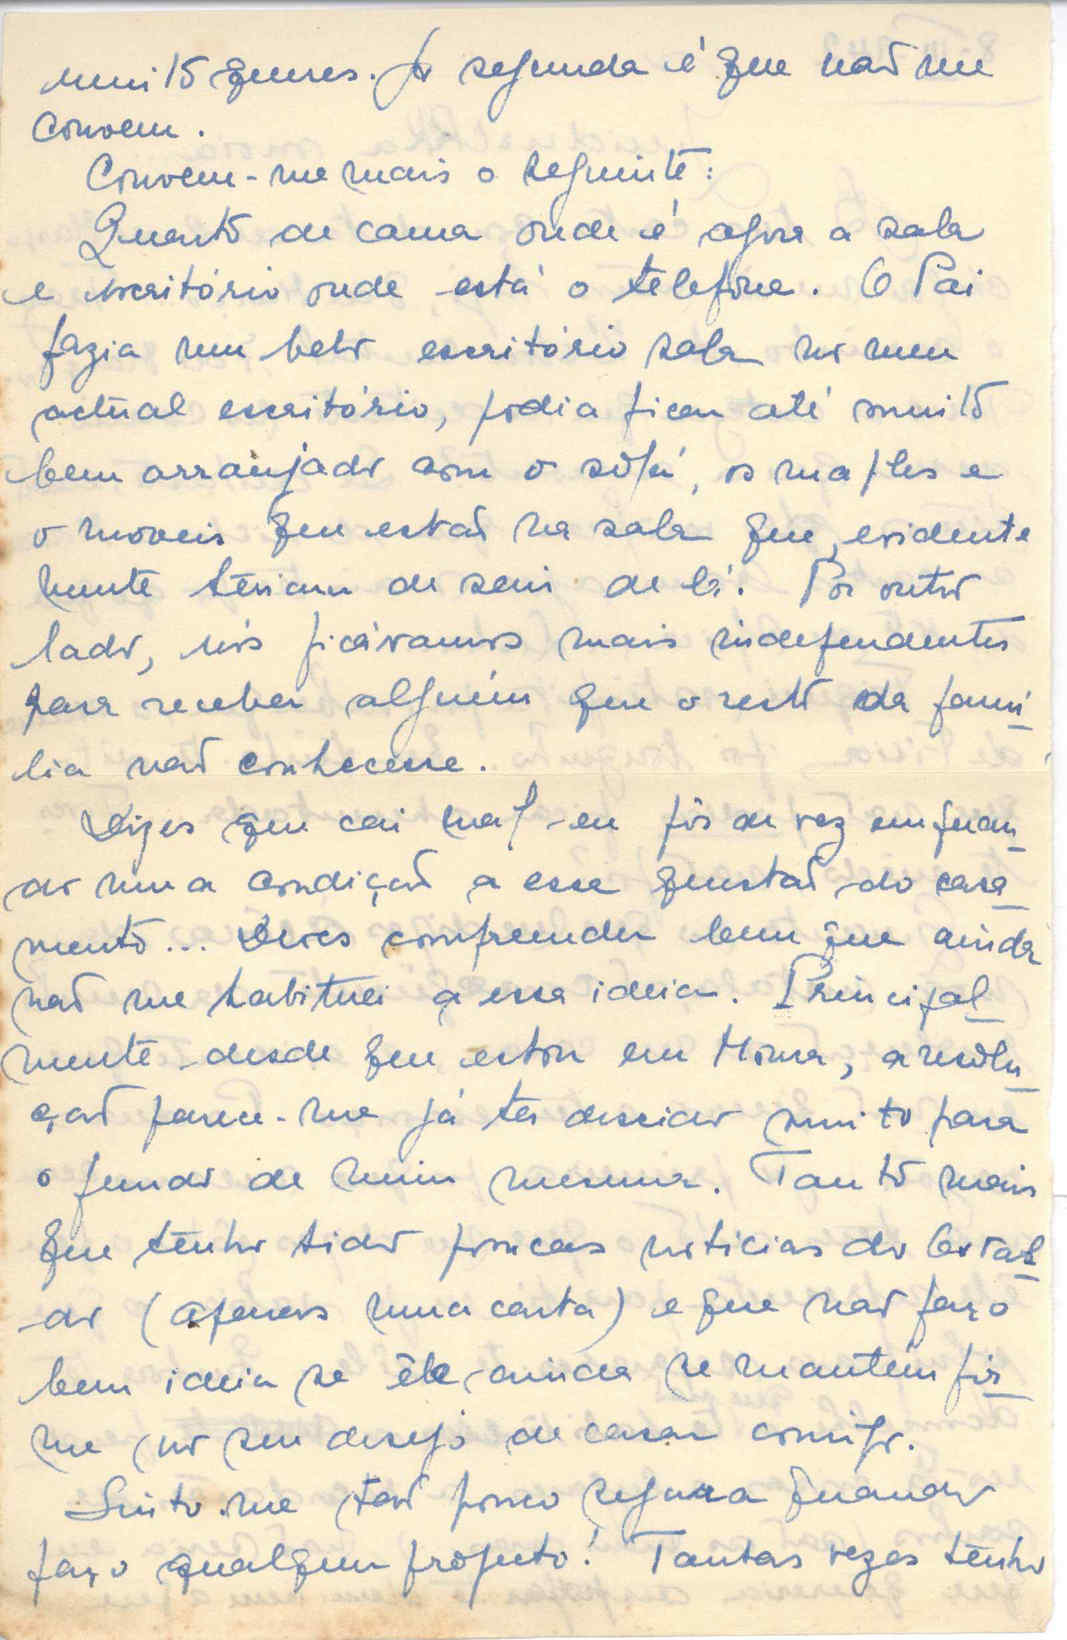 muito quentes. A segunda é que não me
convem.
Convem-me mais o seguinte:
Quarto de cama onde é agora a sala
e escritório onde está o telefone. O Pai
fazia um belo escritório sala no meu
actual escritório, podia ficar até muito
bem arranjado com o sofá, os maples e
o moveis que estão na sala que, evidente
mente teriam de sair de lá. Por outro
lado, nós ficávamos mais independentes
para receber alguém que o resto da famí-
lia não conhecesse.
Dizes que cai mal eu pôr de vez em quan-
do uma condição a essa questão do casa-
mento... Deves compreender bem que ainda
não me habituei a essa ideia. Principal-
mente desde que estou em Moura, a resolu-
ção parece-me já ter descido muito para
o fundo de mim mesma. Tanto mais
que tenho tido poucas noticias do
(apenas uma carta) e que não faço
bem ideia se êle ainda se mantém fir-
me no seu desejo de casar comigo.
Sinto-me tão pouco segura quando
faço qualquer projecto! Tantas vezes tenho